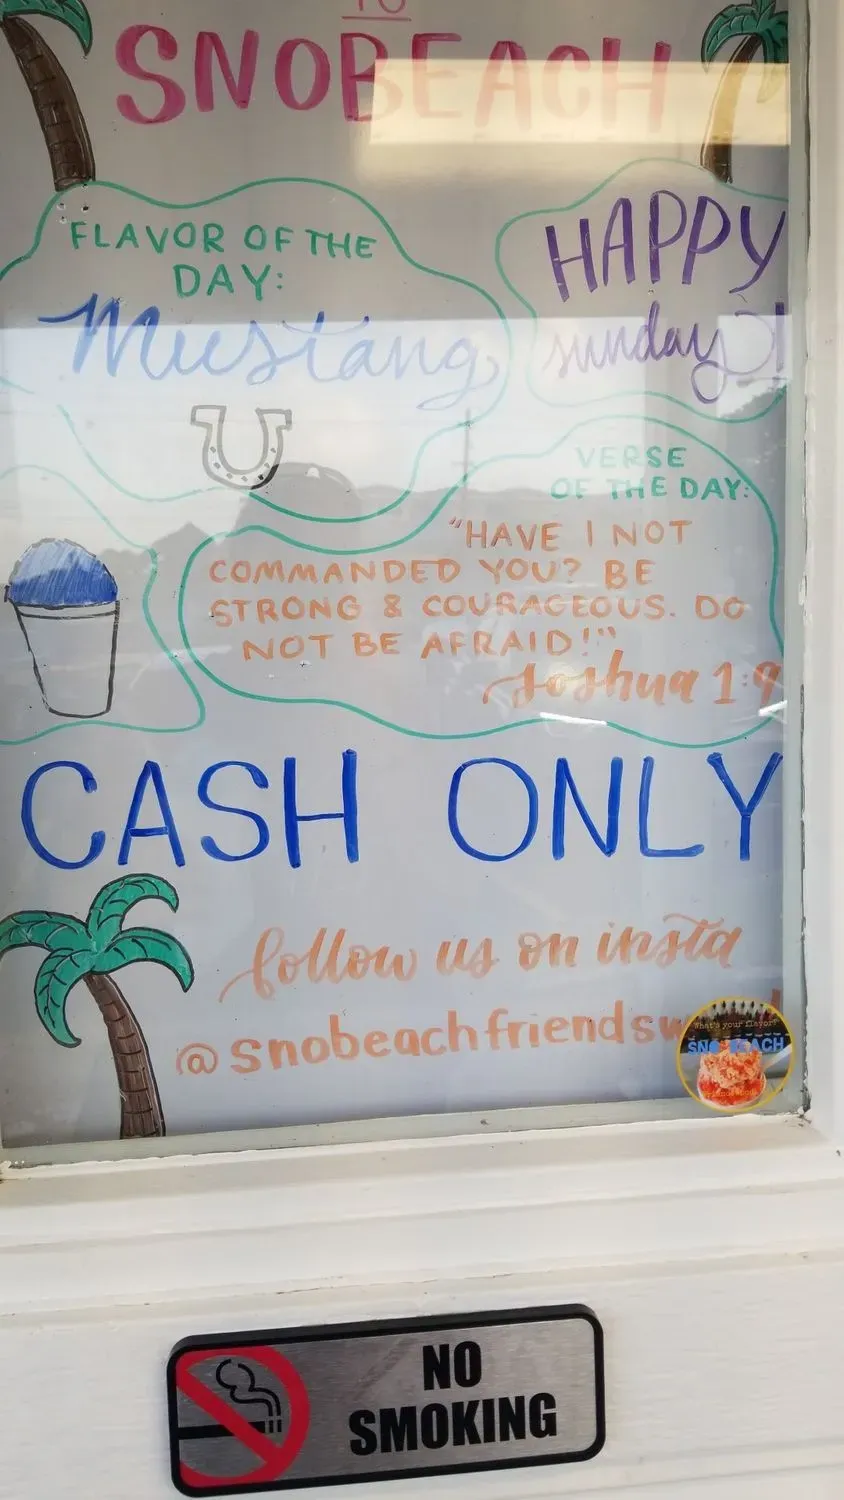 TO
SNOBEACH
FLAVOR OF THE
DAY:
Mustang
HAPPY
sunday!
VERSE
OF THE DAY:
"HAVE I NOT
COMMANDED YOU? BE
STRONG & COURAGEOUS. DO
NOT BE AFRAID!"
Joshua 1:9
CASH ONLY
follow us on insta
@snobeachfriendsw
What's your flavor?
SNO BEACH
NO
SMOKING